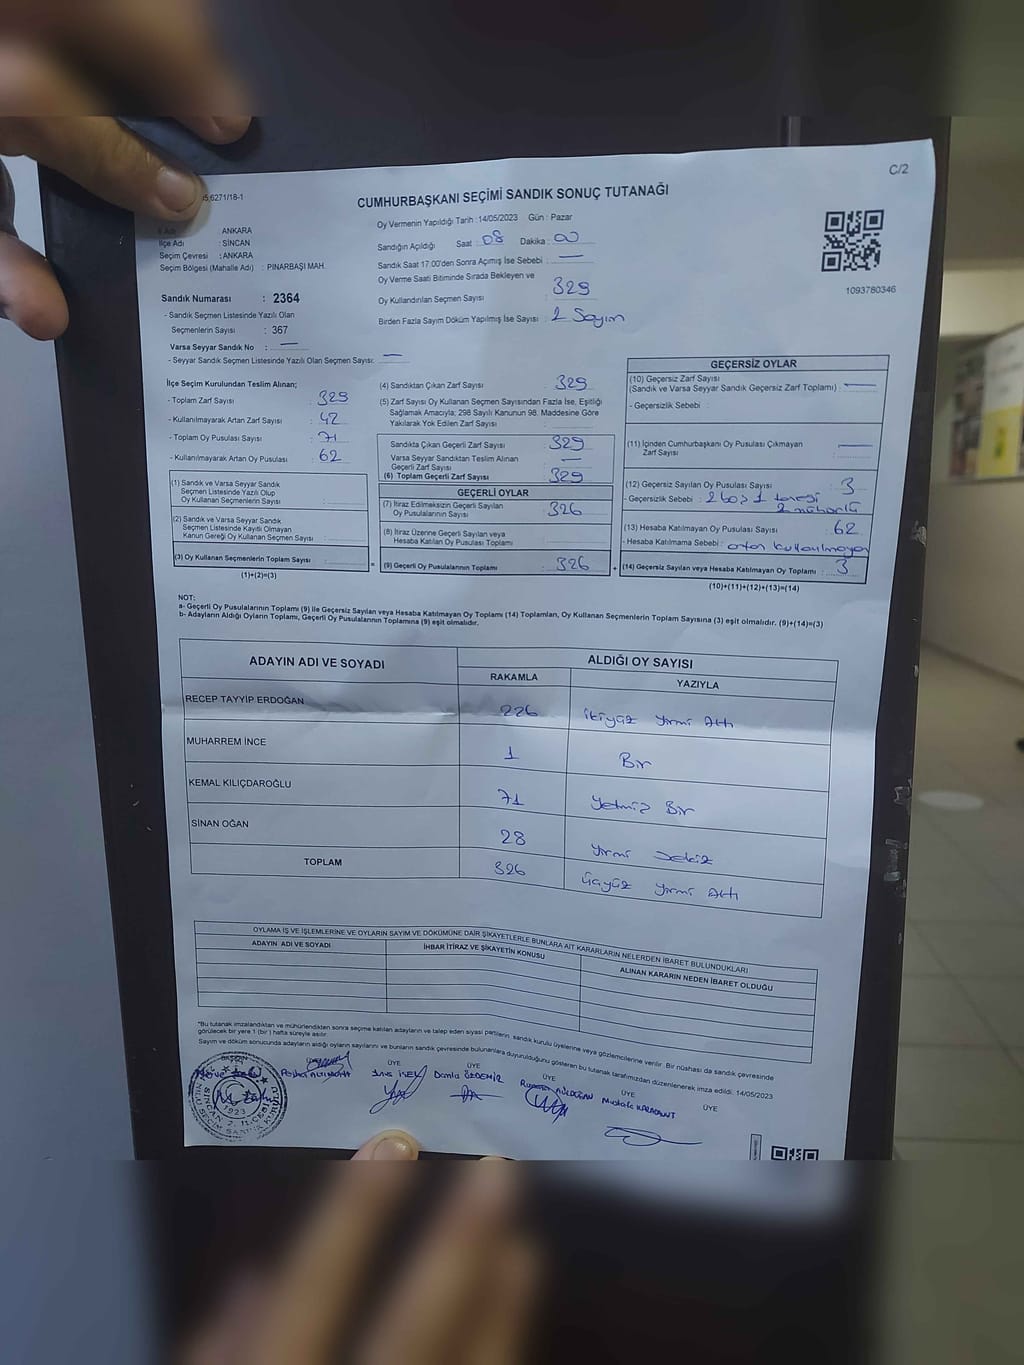 C/2
CUMHURBAŞKANI SEÇİMİ SANDIK SONUÇ TUTANAĞI
6271/18-1
Adı : ANKARA
İlçe Adı : SİNCAN
Seçim Çevresi : ANKARA
Seçim Bölgesi (Mahalle Adı) : PINARBAŞI MAH.
Sandık Numarası : 2364
- Sandık Seçmen Listesinde Yazılı Olan
Seçmenlerin Sayısı : 367
Varsa Seyyar Sandık No : —
- Seyyar Sandık Seçmen Listesinde Yazılı Olan Seçmen Sayısı: —
Oy Vermenin Yapıldığı Tarih : 14/05/2023 Gün : Pazar
Sandığın Açıldığı Saat : 08 Dakika : 00
Sandık Saat 17:00'den Sonra Açımış İse Sebebi : —
Oy Verme Saati Bitiminde Sırada Bekleyen ve
Oy Kullandırılan Seçmen Sayısı 329
Birden Fazla Sayım Döküm Yapılmış İse Sayısı : 2 Sayım
1093780346
İlçe Seçim Kurulundan Teslim Alınan;
- Toplam Zarf Sayısı : 329
- Kullanılmayarak Artan Zarf Sayısı : 42
- Toplam Oy Pusulası Sayısı : 71
- Kullanılmayarak Artan Oy Pusulası : 62
(1) Sandık ve Varsa Seyyar Sandık
Seçmen Listesinde Yazılı Olup
Oy Kullanan Seçmenlerin Sayısı :
(2) Sandık ve Varsa Seyyar Sandık
Seçmen Listesinde Kayıtlı Olmayan
Kanun Gereği Oy Kullanan Seçmen Sayısı :
(3) Oy Kullanan Seçmenlerin Toplam Sayısı :
(1)+(2)=(3)
(4) Sandıktan Çıkan Zarf Sayısı : 329
(5) Zarf Sayısı Oy Kullanan Seçmen Sayısından Fazla İse, Eşitliği
Sağlamak Amacıyla; 298 Sayılı Kanunun 98. Maddesine Göre
Yakılarak Yok Edilen Zarf Sayısı :
Sandıkta Çıkan Geçerli Zarf Sayısı : 329
Varsa Seyyar Sandıktan Teslim Alınan
Geçerli Zarf Sayısı : —
(6) Toplam Geçerli Zarf Sayısı : 329
GEÇERLİ OYLAR
(7) İtiraz Edilmeksizin Geçerli Sayılan
Oy Pusulalarının Sayısı : 326
(8) İtiraz Üzerine Geçerli Sayılan veya
Hesaba Katılan Oy Pusulası Toplamı :
(9) Geçerli Oy Pusulalarının Toplamı : 326
GEÇERSİZ OYLAR
(10) Geçersiz Zarf Sayısı
(Sandık ve Varsa Seyyar Sandık Geçersiz Zarf Toplamı) : —
- Geçersizlik Sebebi :
(11) İçinden Cumhurbaşkanı Oy Pusulası Çıkmayan
Zarf Sayısı : —
(12) Geçersiz Sayılan Oy Pusulası Sayısı : 3
- Geçersizlik Sebebi : 2 boş 1 tanesi
2 mühürlü
(13) Hesaba Katılmayan Oy Pusulası Sayısı : 62
- Hesaba Katılmama Sebebi : artan kullanılmayan
(14) Geçersiz Sayılan veya Hesaba Katılmayan Oy Toplamı : 3
(10)+(11)+(12)+(13)=(14)
NOT:
a- Geçerli Oy Pusulalarının Toplamı (9) ile Geçersiz Sayılan veya Hesaba Katılmayan Oy Toplamı (14) Toplamları, Oy Kullanan Seçmenlerin Toplam Sayısına (3) eşit olmalıdır. (9)+(14)=(3)
b- Adayların Aldığı Oyların Toplamı, Geçerli Oy Pusulalarının Toplamına (9) eşit olmalıdır.
ADAYIN ADI VE SOYADI ALDIĞI OY SAYISI
RAKAMLA YAZIYLA
RECEP TAYYİP ERDOĞAN 226 ikiyüz yirmi Altı
MUHARREM İNCE 1 Bir
KEMAL KILIÇDAROĞLU 71 Yetmiş Bir
SİNAN OĞAN 28 Yirmi Sekiz
TOPLAM 326 Üçyüz yirmi Altı
OYLAMA İŞ VE İŞLEMLERİNE VE OYLARIN SAYIM VE DÖKÜMÜNE DAİR ŞİKAYETLERLE BUNLARA AİT KARARLARIN NELERDEN İBARET BULUNDUKLARI
ADAYIN ADI VE SOYADI İHBAR İTİRAZ VE ŞİKAYETİN KONUSU ALINAN KARARIN NEDEN İBARET OLDUĞU
*Bu tutanak imzalandıktan ve mühürlendikten sonra seçime katılan adayların ve talep eden siyasi partilerin, sandık kurulu üyelerine veya gözlemcilerine verilir. Bir nüshası da sandık çevresinde
görülecek bir yere 1 (bir) hafta süreyle asılır.
Sayım ve döküm sonucunda adayların aldığı oyların sayılarını ve bunların sandık çevresinde bulunanlara duyurulduğunu gösteren bu tutanak tarafımızdan düzenlenerek imza edildi. 14/05/2023
ÜYE ÜYE ÜYE ÜYE ÜYE
Damla ÖZDEMİR
1923